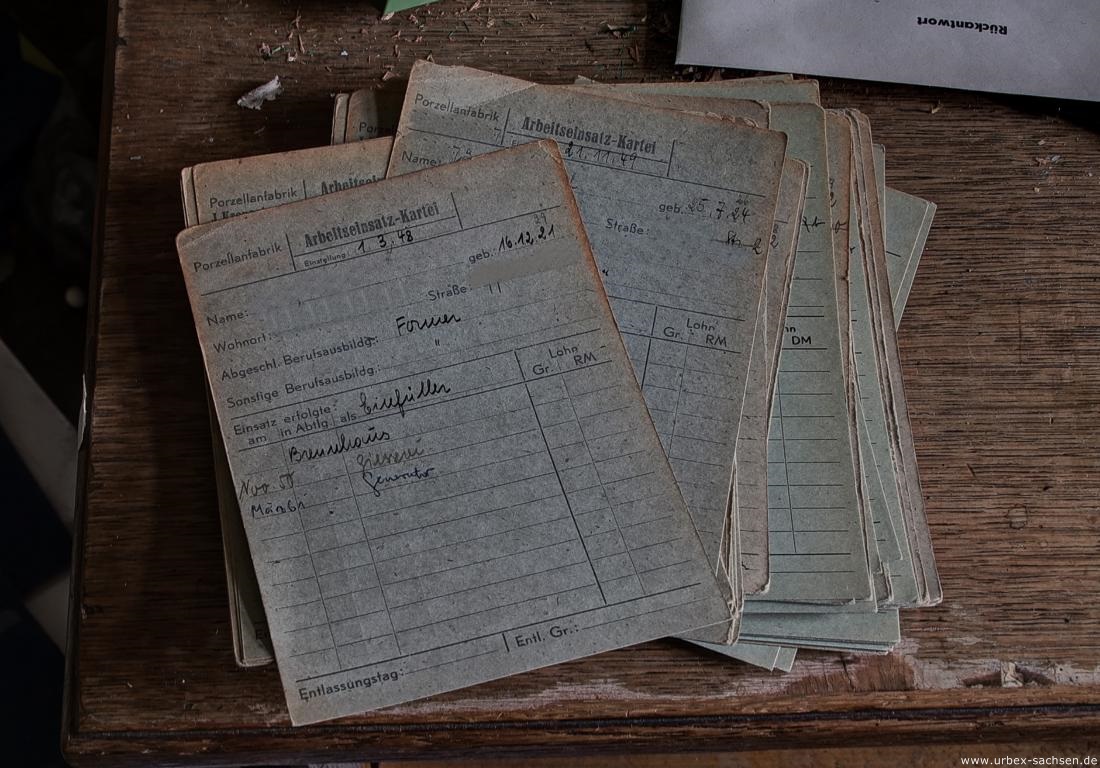 Rückantwort
Porzellanfabrik
Arbeitseinsatz-Kartei
21.11.49
Name:
geb. 25.7.24
Straße:
Lohn
Gr. RM
Porzellanfabrik
DM
Porzellanfabrik
Arbeitseinsatz-Kartei
Einstellung: 1.3.48
geb. 16.12.21
Name:
Wohnort: Straße:
Abgeschl. Berufsausbildg.: Former
Sonstige Berufsausbildg.: "
Einsatz erfolgte: Lohn
am in Abtlg. als Einfüller Gr. RM
Brennhaus
Nov 50 Giesserei
März 61 Generator
Entlassungstag: Entl. Gr.:
www.urbex-sachsen.de